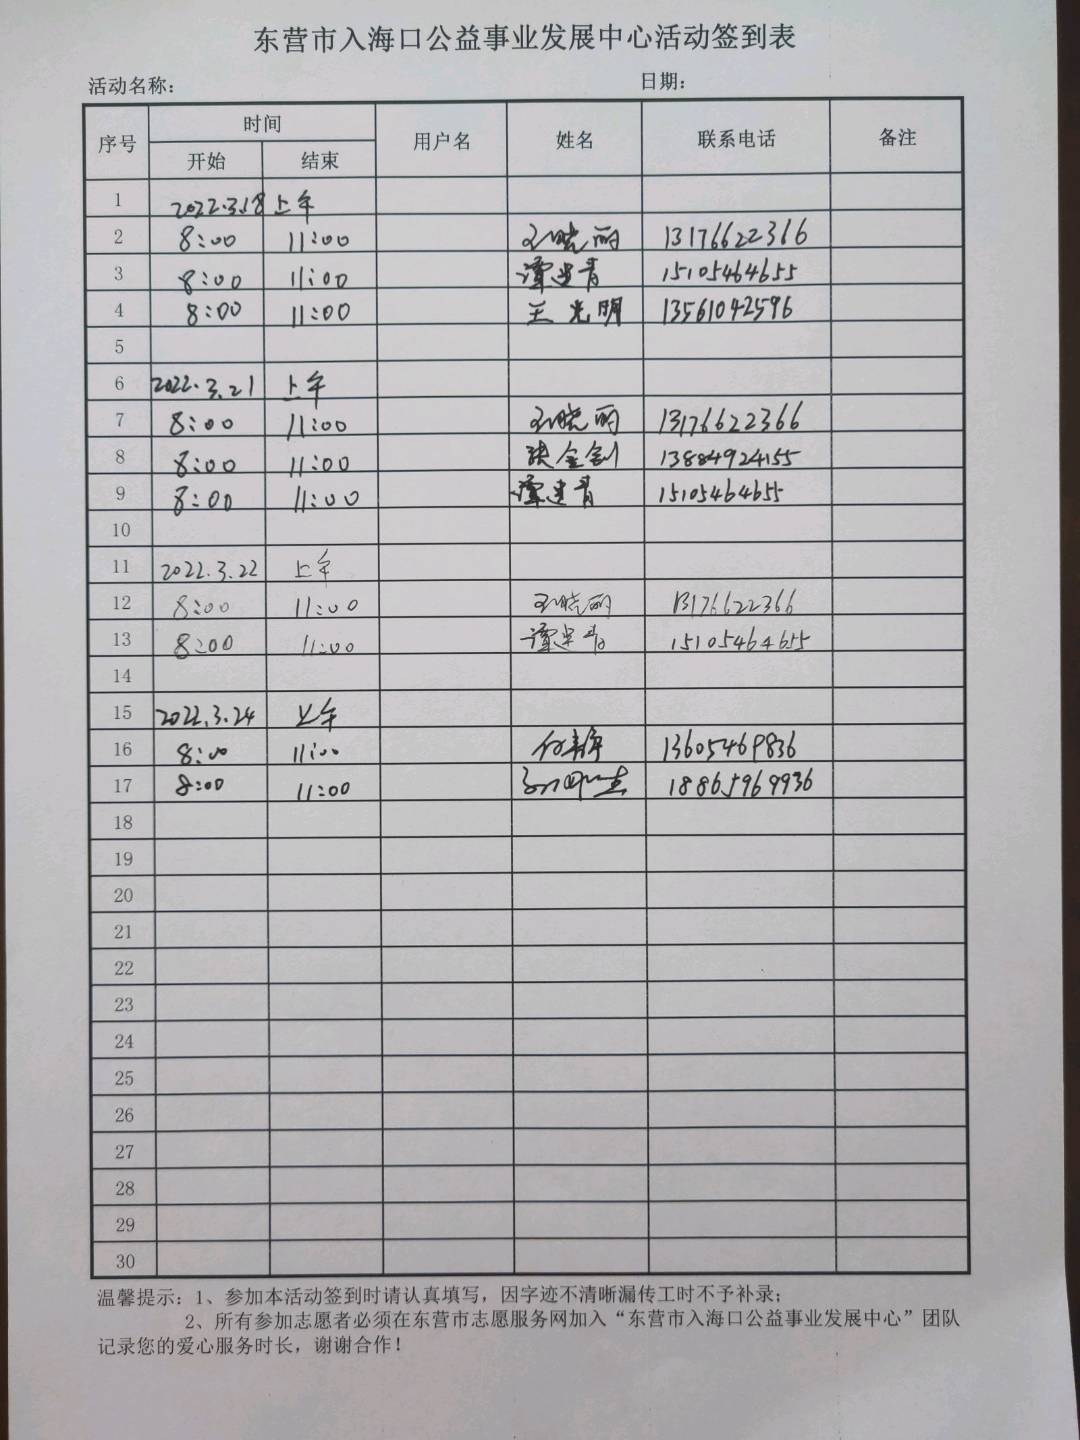 东营市入海口公益事业发展中心活动签到表
活动名称： 日期：
序号 时间 用户名 姓名 联系电话 备注
开始 结束
1 2022.3.18 上午
2 8:00 11:00 晓丽 13176622366
3 8:00 11:00 谭建青 15105464655
4 8:00 11:00 王光明 13561042596
5
6 2022.3.21 上午
7 8:00 11:00 晓丽 13176622366
8 8:00 11:00 13884924155
9 8:00 11:00 谭建青 15105464655
10
11 2022.3.22 上午
12 8:00 11:00 晓丽 13176622366
13 8:00 11:00 谭建青 15105464655
14
15 2022.3.24 上午
16 8:00 11:00 13605469836
17 8:00 11:00 18865969936
18
19
20
21
22
23
24
25
26
27
28
29
30
温馨提示：1、参加本活动签到时请认真填写，因字迹不清晰漏传工时不予补录；
2、所有参加志愿者必须在东营市志愿服务网加入“东营市入海口公益事业发展中心”团队
记录您的爱心服务时长，谢谢合作！